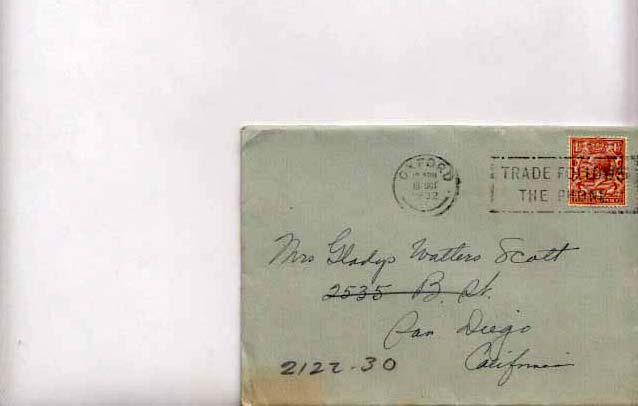 OXFORD
OCT
1932
TRADE FOLLOWS
THE PHONE
Mrs Gladys Watters Scott
2535 B. St.
San Diego
California
2122-30